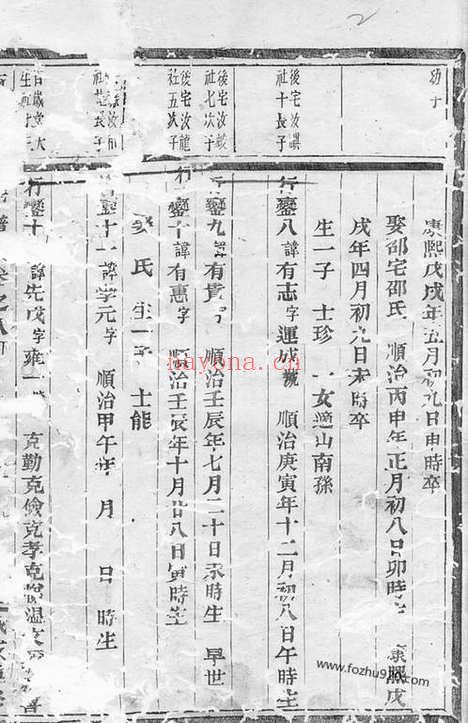 幼子
康熙戊戌年五月初九日申時卒
娶邵宅邵氏 順治丙申年正月初八日卯時生 康熙戊
戌年四月初九日未時卒
生一子 士珍 一女適山南孫
後宅汝
社十長子
行鑾八 諱有志字運成號 順治庚寅年十二月初八日午時生
後宅汝
社七次子
行鑾九 諱有貴字 順治壬辰年七月二十日未時生 早世
後宅汝龍
社五次子
行鑾十 諱有惠字 順治壬辰年十月廿八日寅時生
氏 生一子 士能
長子
鑾十一 諱學元字 順治甲午年 月 日 時生
行鑾十 諱先成字雍一 克勤克儉克孝克 溫
www.fozhu9.com
nayona.cn